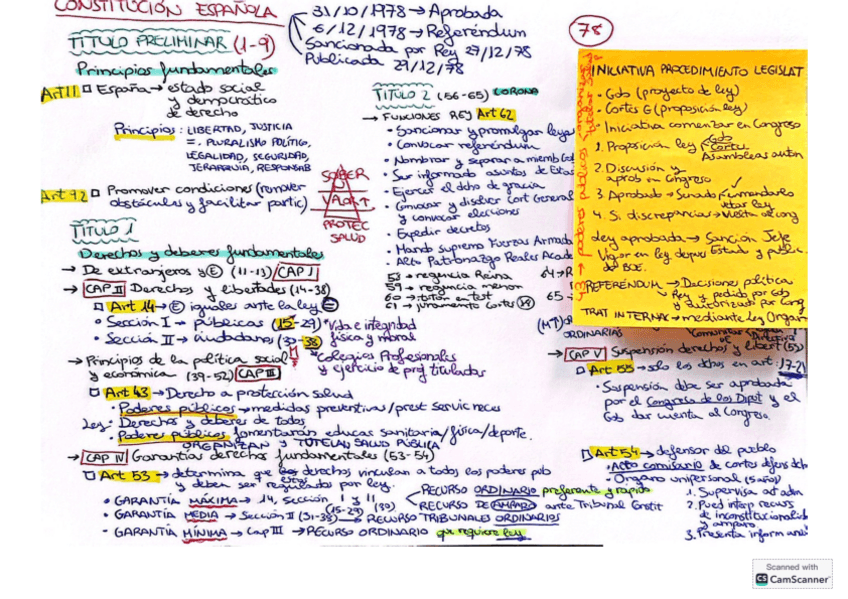 CONSTITUCIÓN ESPAÑOLA
31/10/1978 → Aprobada
6/12/1978 → Referéndum
Sancionada por Rey 27/12/78
Publicada 29/12/78
78
TITULO PRELIMINAR (1-9)
Principios fundamentales
Art 1.1 España → estado social
y democrático
de derecho
Principios: LIBERTAD, JUSTICIA
=. PLURALISMO POLÍTICO,
LEGALIDAD, SEGURIDAD,
JERARQUIA, RESPONSAB
Promover condiciones (remover
obstáculos y facilitar partic)
SOBER
VALOR
PROTEC
SALUD
TITULO 1
Derechos y deberes fundamentales
→ De extranjeros y E (11-13) CAP I
→ CAP II Derechos y libertades (14-38)
Art 14 → E iguales ante la ley =
• Sección I → públicas (15-29) *Vida e integridad
física y moral
• Sección II → ciudadanos (30-38)
*Colegios Profesionales
y ejercicio de prof tituladas
→ Principios de la política social
y económica (39-52) CAP III
Art 43 → Derecho a protección salud
• Poderes públicos → medidas preventivas/prest servic neces
Ley: Derechos y deberes de todos
• Poderes públicos fomentarán educac sanitaria/física/deporte.
ORGANIZAN Y TUTELAN SALUD PÚBLICA
→ CAP IV Garantías derechos fundamentales (53-54)
Art 53 → determina que los derechos vinculan a todos los poderes pub
y deben ser regulados por ley.
• GARANTÍA MÁXIMA → 14, Sección I y II
(15-29) (30)
RECURSO ORDINARIO preferente y rápido
RECURSO DE AMPARO ante Tribunal Constit
• GARANTÍA MEDIA → Sección II (31-38) → RECURSO TRIBUNALES ORDINARIOS
• GARANTÍA MÍNIMA → Cap III → RECURSO ORDINARIO que requiere ley
TITULO 2 (56-65) CORONA
→ FUNCIONES REY Art 62
• Sancionar y promulgar leyes
• Convocar referéndum
• Nombrar y separar a miemb Gob
• Ser informado asuntos de Estad
• Ejercer el dcho de gracia
• Convocar y disolver Cort General
y convocar elecciones
• Expedir decretos
• Mando supremo Fuerzas Armada
• Alto Patronazgo Reales Acade
58 → regencia Reina
59 → regencia menor
60 → tutor en test
61 → juramento Cortes
64 → R
65 →
INICIATIVA PROCEDIMIENTO LEGISLAT
• Gob (proyecto de ley)
• Cortes G (Proposición ley)
• Iniciativa comenzar en Congreso
1. Proposición ley
Gob
Cortes
Asambleas autón
2. Discusión y
aprob en Congreso
3 Aprobado → Senado
enmendarlo
vetar ley
4. Si discrepancias → Vuelta al cong
Ley aprobada → Sanción Jefe
Vigor en ley después Estad y public.
del BOE.
REFERENDUM → Decisiones política
Rey y pedido por Gob
y autorizado por Cong
TRAT INTERNAC → mediante Ley Organ
ORDINARIAS
→ CAP V Suspensión derechos y libert (55)
Art 55 → solo los dchos en art: 17-21
• Suspensión debe ser aprobada
por el Congreso de los Diput y el
Gob dar cuenta al Congreso
Art 54 → defensor del pueblo
• Alto comisario de cortes defens dch
• Órgano unipersonal (5 años)
1. Supervisa act adm
2. Pued interp recurs
de inconstitucionalid
y amparo
3. Presenta inform anual
Scanned with
CS CamScanner